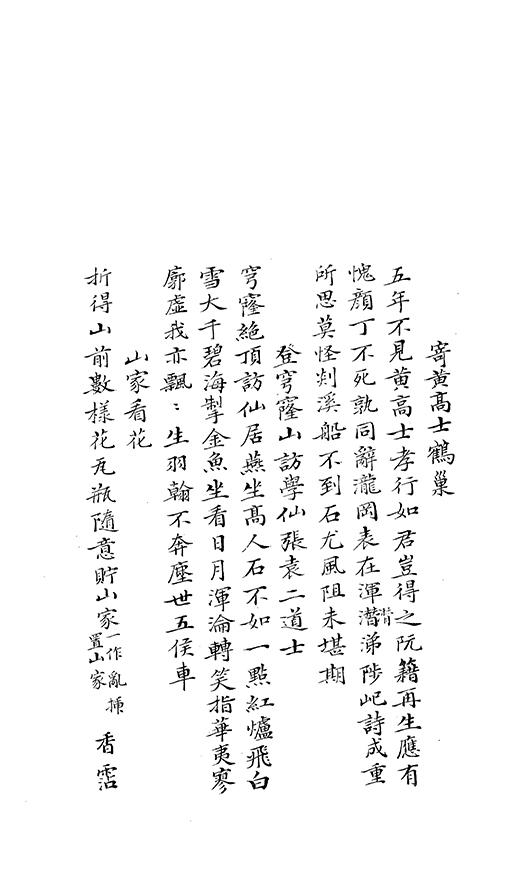 寄黄髙士鶴巢
五年不見黄高士孝行如君豈得之阮籍再生應有
愧顔丁不死孰同辭瀧岡表在渾潸背涕陟屺詩成重
所思莫怪剡溪船不到石尤風阻未堪期
登穹窿山訪學仙張袁二道士
穹窿絶頂訪仙居燕坐髙人石不如一點紅爐飛白
雪大千碧海掣金魚坐看日月渾淪轉笑指華夷寥
廓虛我亦飄〻生羽翰不奔塵世五侯車
山家看花
折得山前數様花瓦瓶隨意貯山家一作亂揷置山家香霑